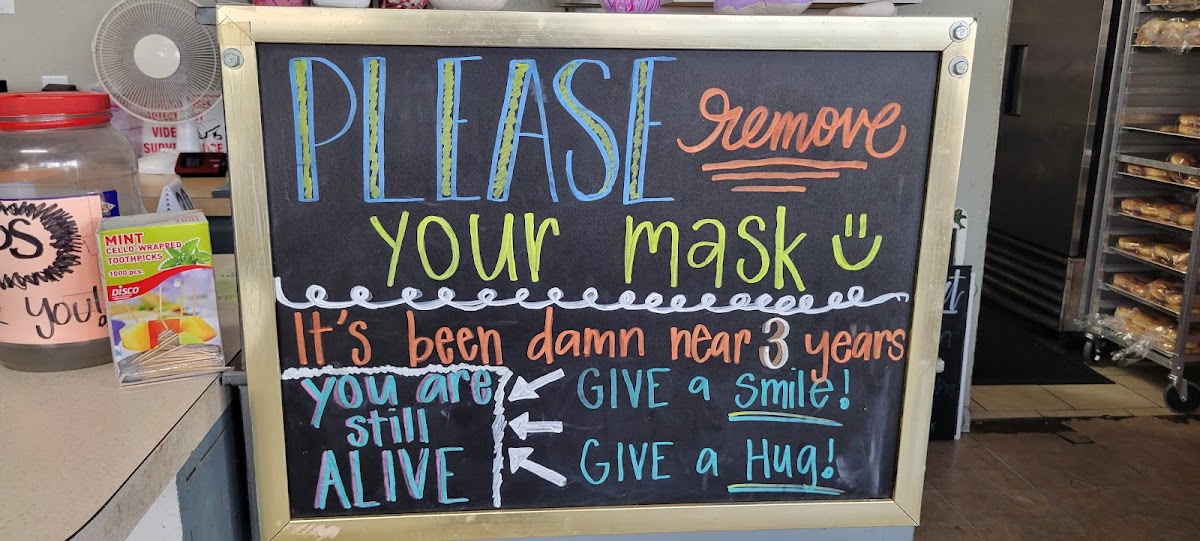 PLEASE remove
your mask
It's been damn near 3 years
you are
still
ALIVE
GIVE a smile!
GIVE a Hug!
MINT
CELLO-WRAPPED
TOOTHPICKS
1000 pcs.
DISCO
you!
VIDEO